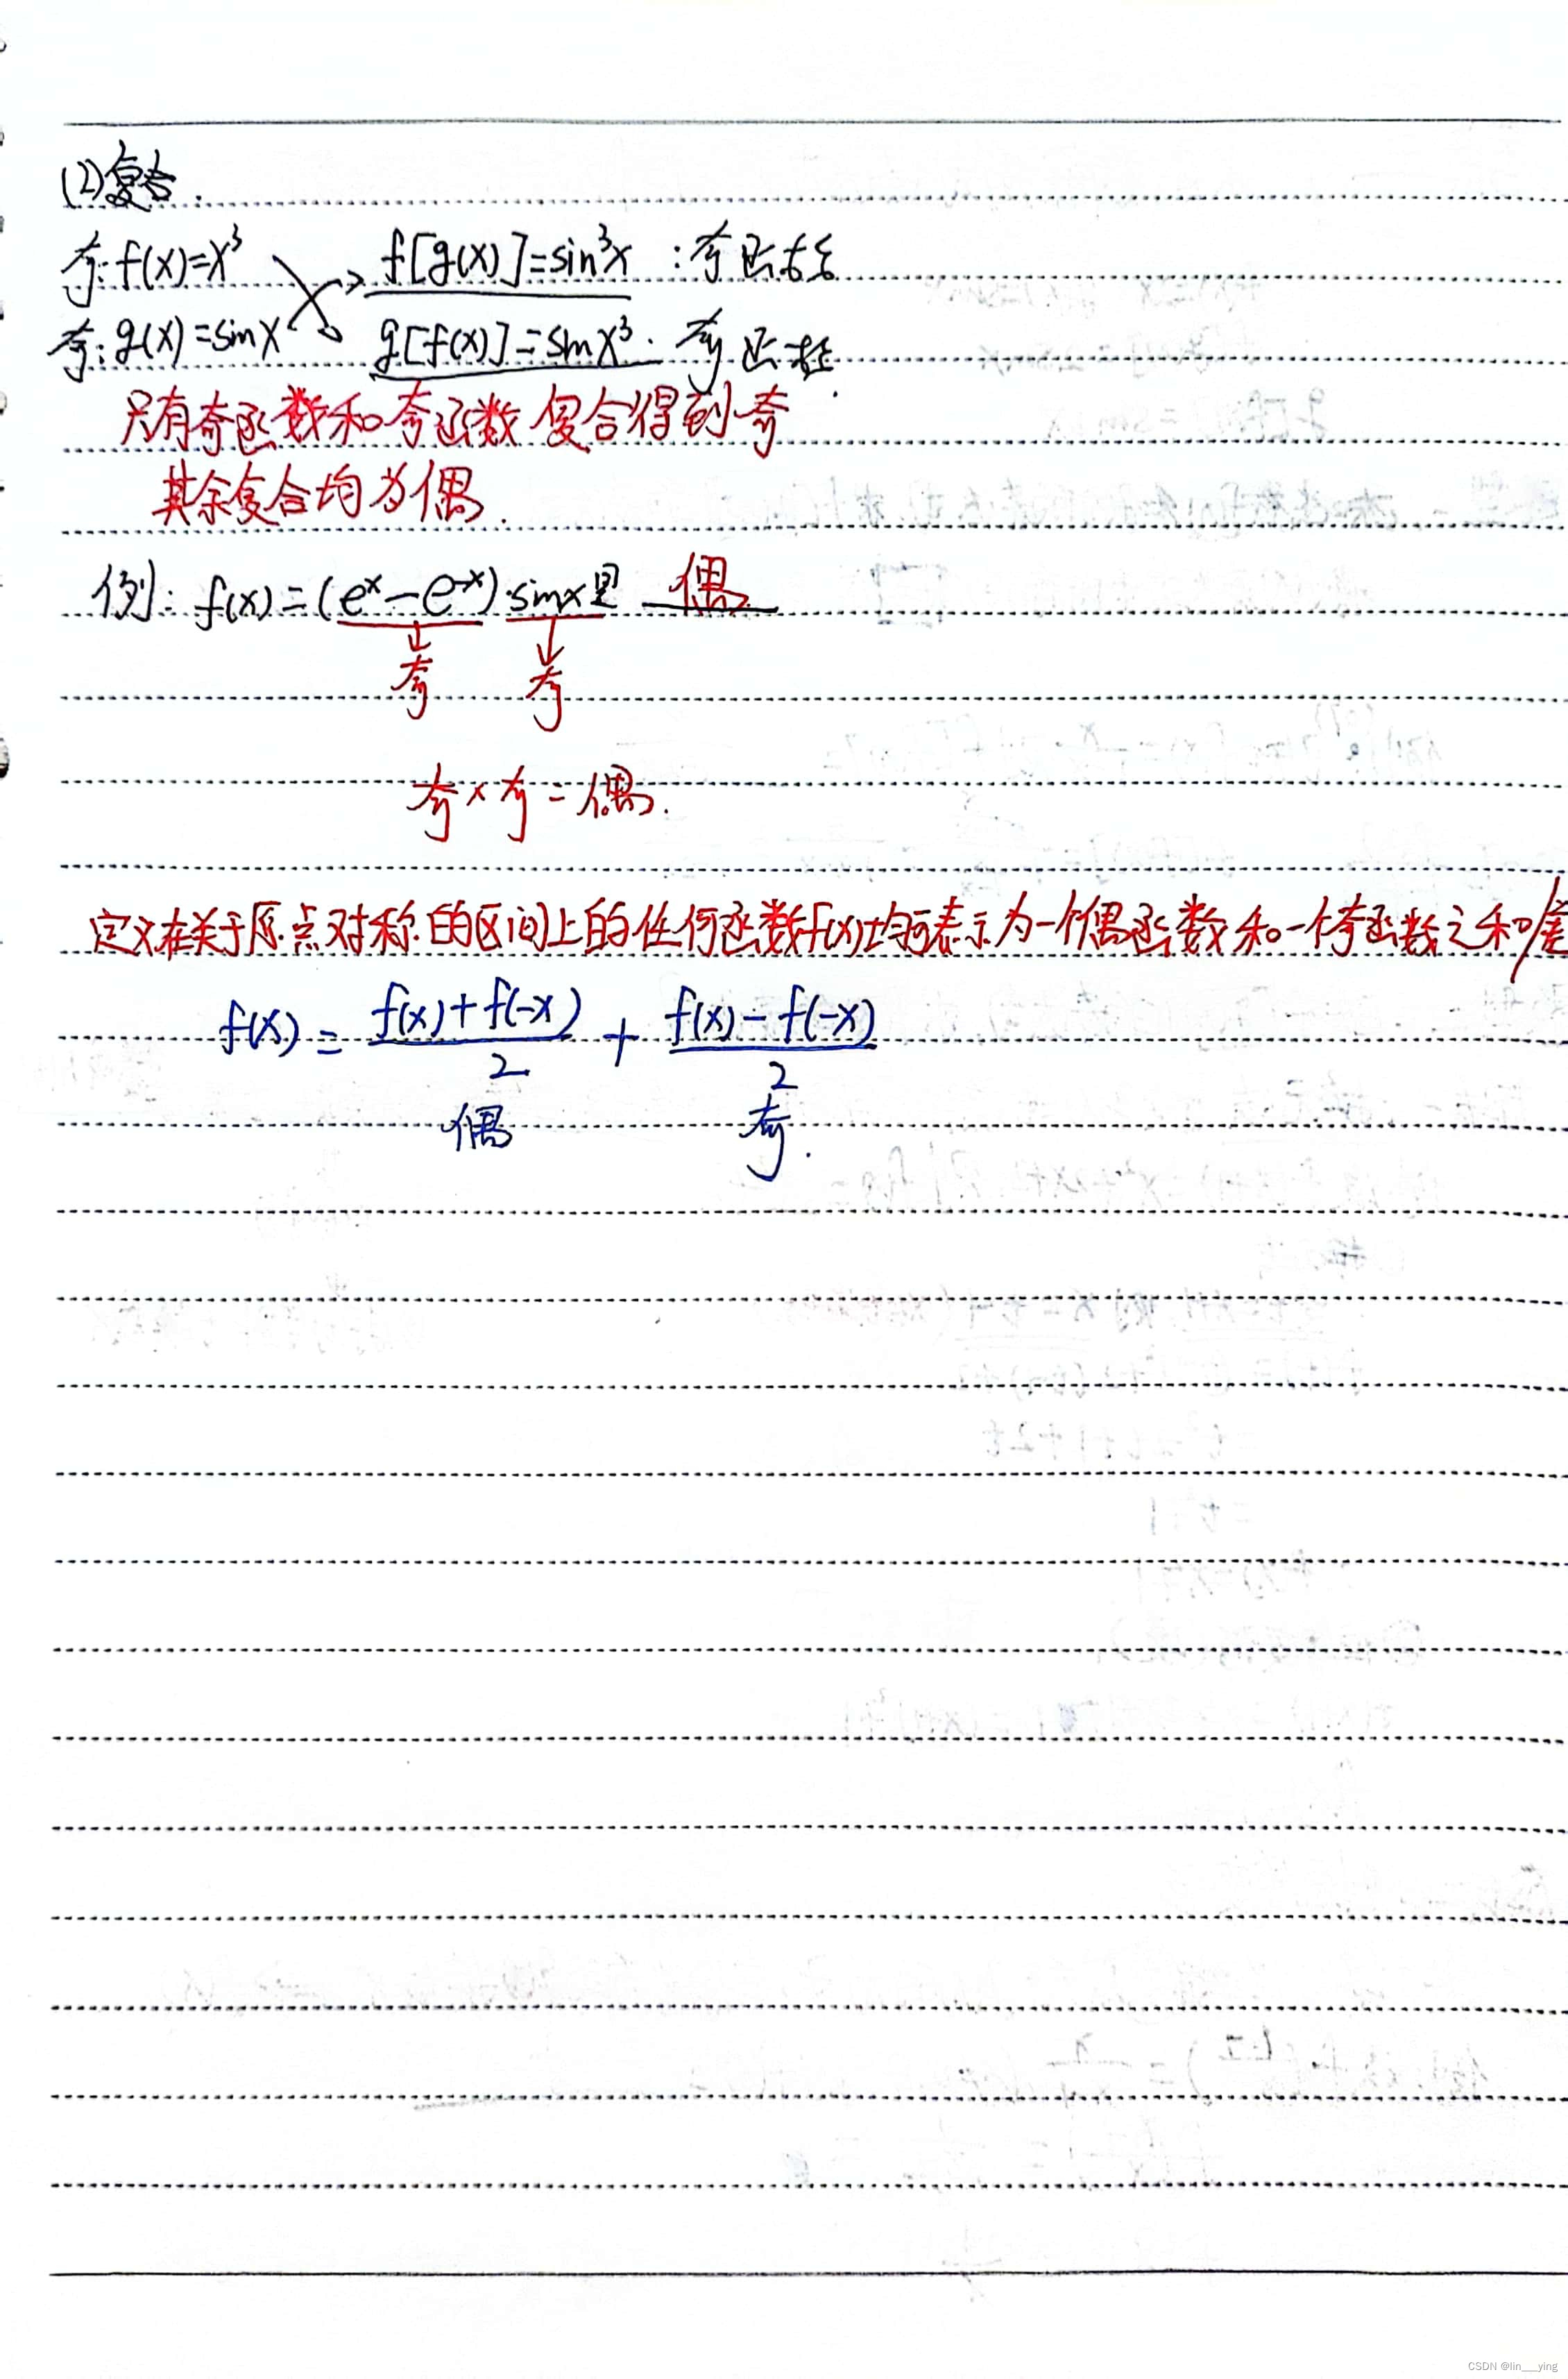 (2)复合.
奇:f(x)=x³ f[g(x)]=sin³x :奇函数
奇:g(x)=sinx g[f(x)]=sinx³. 奇函数.
只有奇函数和奇函数复合得到奇
其余复合均为偶.
例: f(x)=(eˣ-e⁻ˣ)·sinx是 偶
奇 奇
奇×奇=偶.
定义在关于原点对称的区间上的任何函数f(x)均可表示为一个偶函数和一个奇函数之和/差
f(x) = (f(x)+f(-x))/2 + (f(x)-f(-x))/2
偶 奇.
CSDN @lin___ying